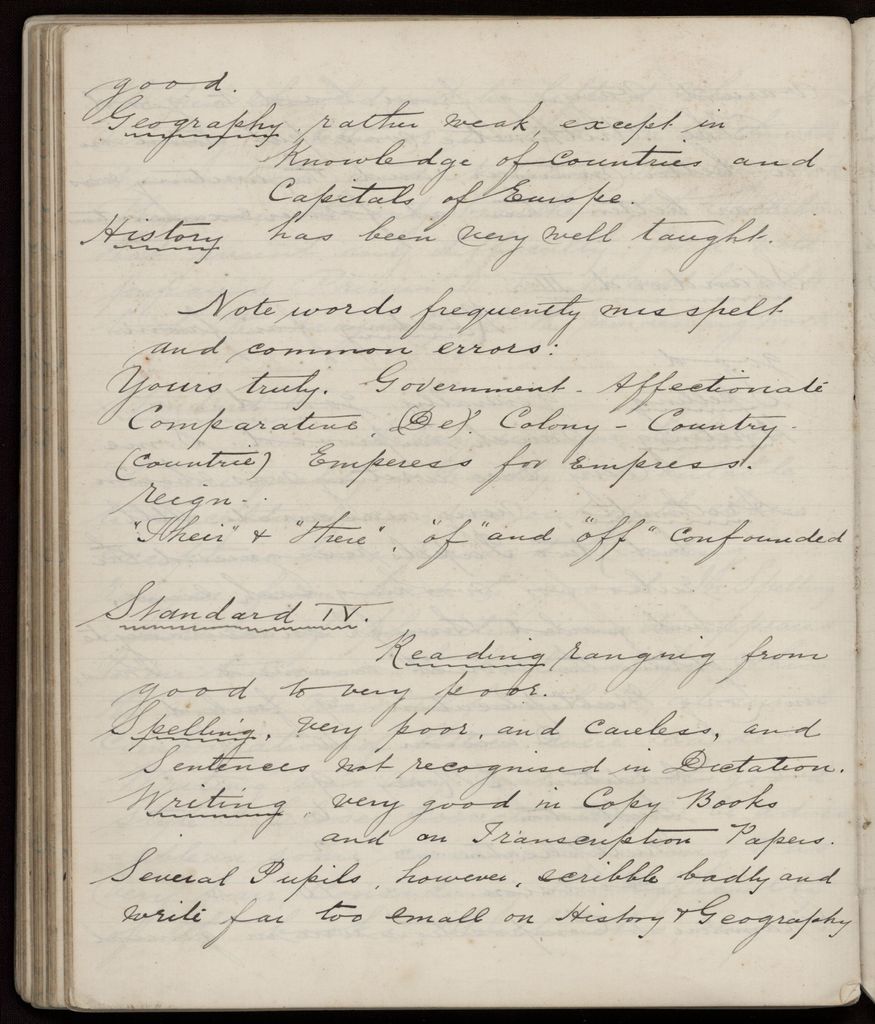 good.
Geography rather weak, except in
Knowledge of Countries and
Capitals of Europe.
History has been very well taught.
Note words frequently misspelt
and common errors:
Yours truly. Government - Affectionate
Comparative. (De). Colony - Country -
(Countrie) Emperess for Empress.
reign -
"Their" & "there", "of" and "off" confounded
Standard IV.
Reading ranging from
good to very poor.
Spelling, very poor, and careless, and
Sentences not recognised in Dictation.
Writing, very good in Copy Books
and on Transcription Papers.
Several Pupils, however, scribble badly and
write far too small on History & Geography